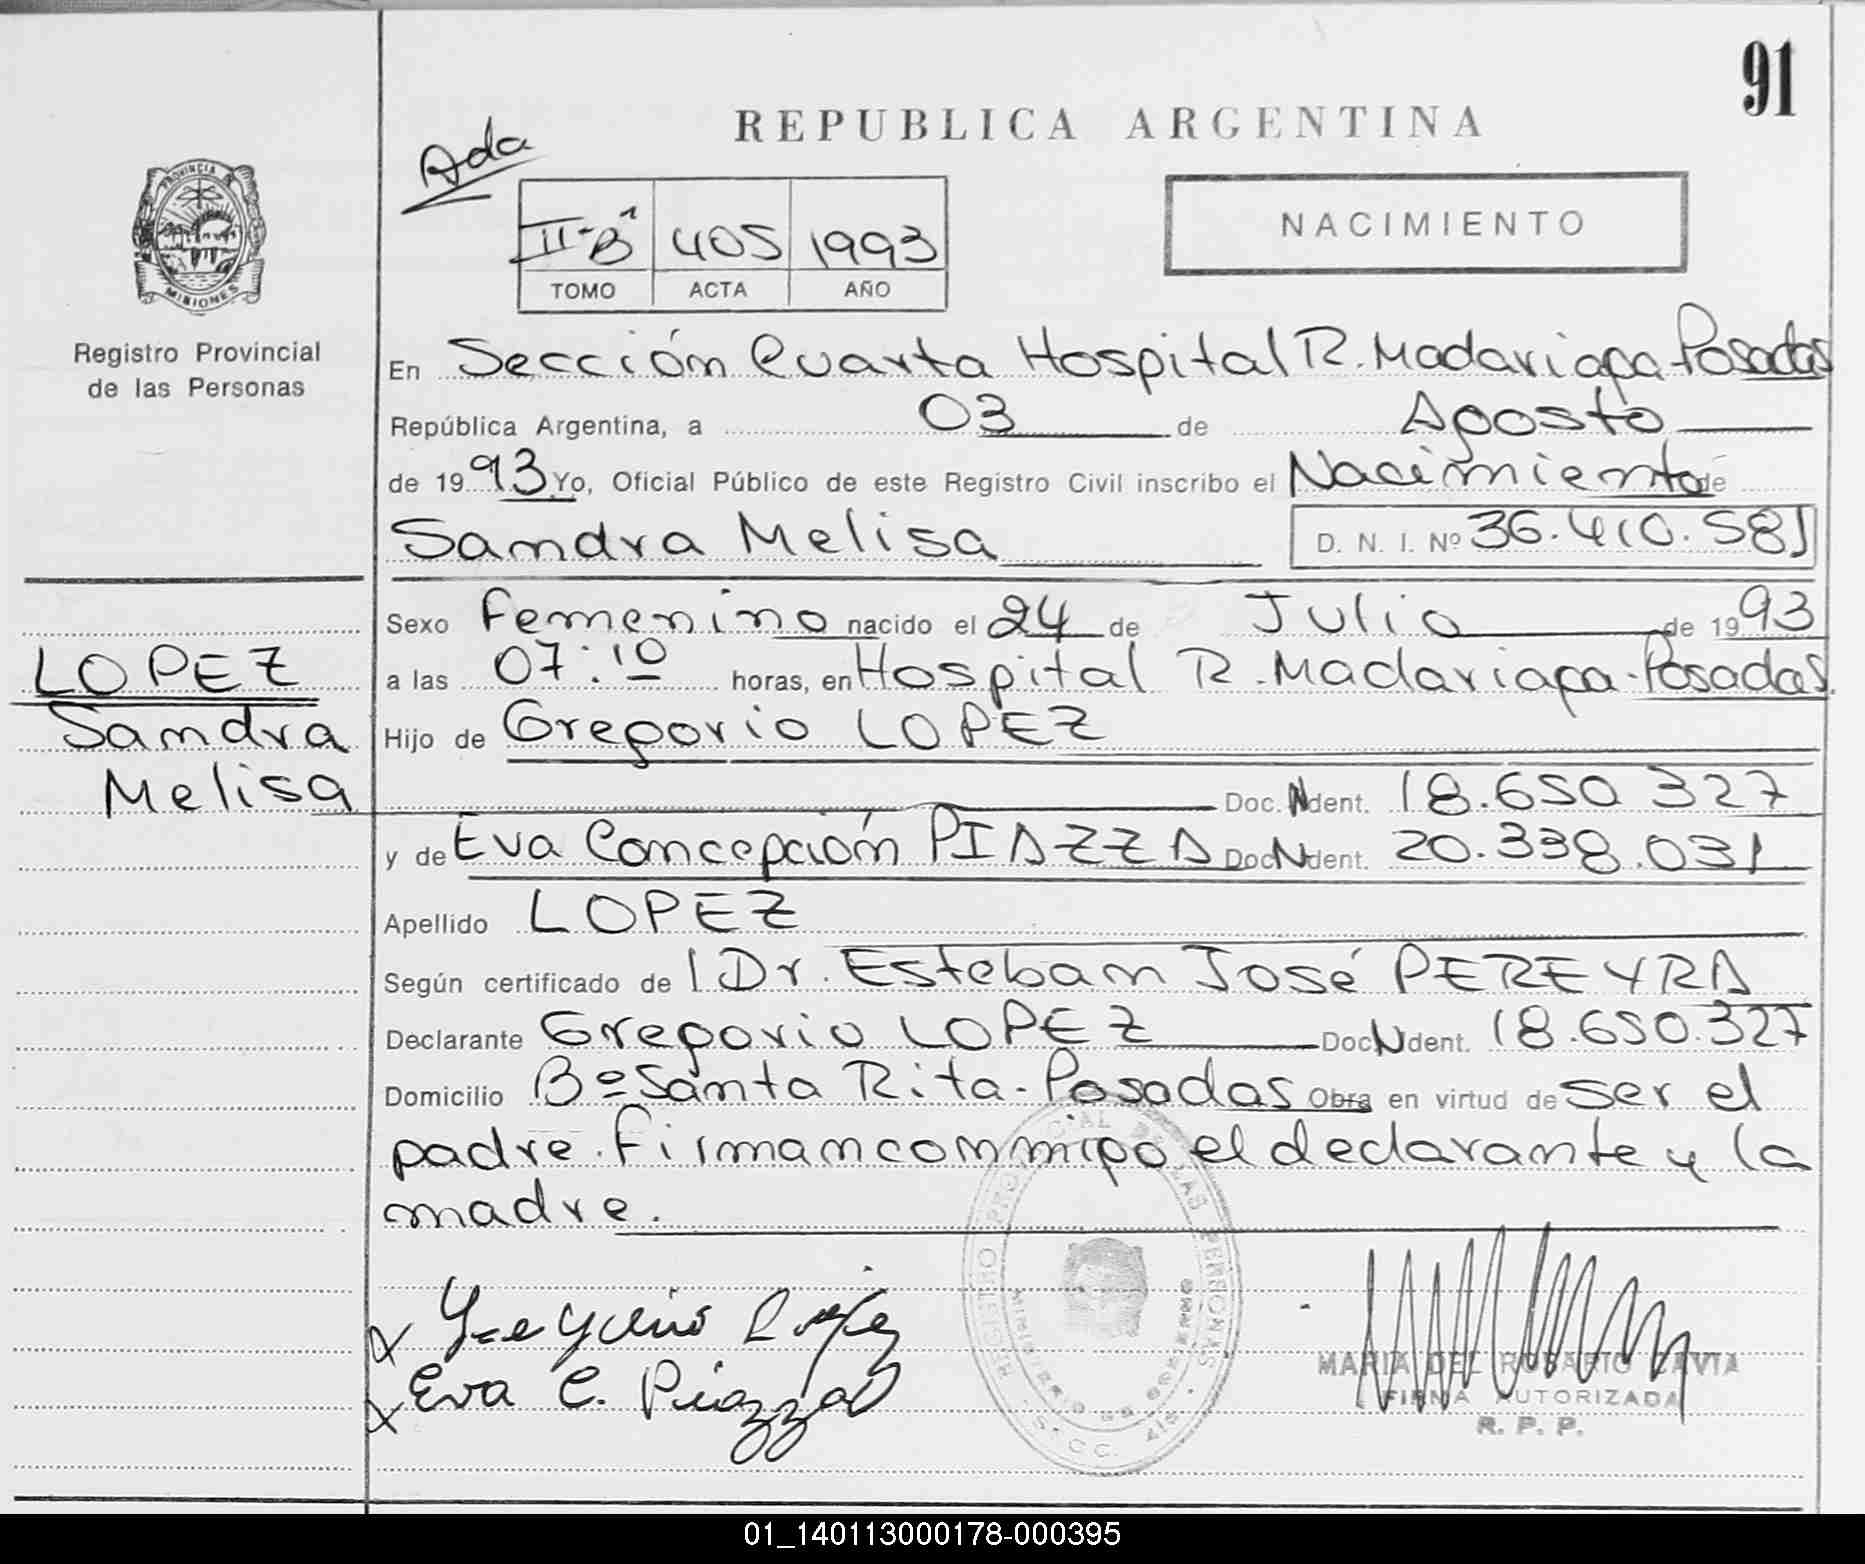 91
REPUBLICA ARGENTINA
Ada
NACIMIENTO
II-B 405 1993
TOMO ACTA AÑO
PROVINCIA DE
MISIONES
Registro Provincial
de las Personas
En Sección Cuarta Hospital R. Madariaga-Posadas
República Argentina, a 03 de Agosto
de 1993 Yo, Oficial Público de este Registro Civil inscribo el Nacimiento de
Sandra Melisa D. N. I. Nº 36.410.581
Sexo Femenino nacido el 24 de Julio de 1993
a las 07:10 horas, en Hospital R. Madariaga-Posadas.
Hijo de Gregorio LOPEZ
Doc. Ident. 18.650.327
y de Eva Concepción PIAZZA Doc. Ident. 20.338.031
Apellido LOPEZ
Según certificado del Dr. Esteban José PEREYRA
Declarante Gregorio LOPEZ Doc. Ident. 18.650.327
Domicilio Bº Santa Rita-Posadas Obra en virtud de ser el
padre. Firman conmigo el declarante y la
madre.
LOPEZ
Sandra
Melisa
REGISTRO PROVINCIAL DE LAS PERSONAS
MINISTERIO DE GOBIERNO
x Gregorio Lopez
x Eva C. Piazza
MARIA DEL ROSARIO
FIRMA AUTORIZADA
R. P. P.
01_140113000178-000395